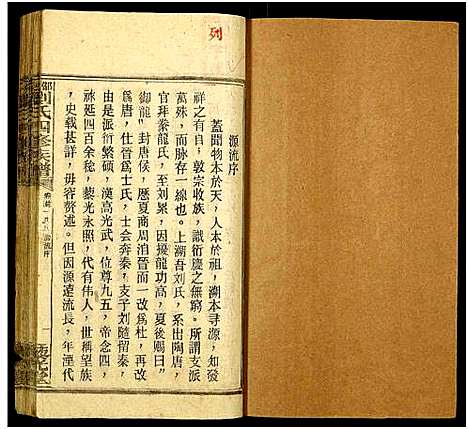 列
源流序
蓋聞物本於天，人本於祖，溯本寻源，如發
祥之有自，敦宗收族，識衍慶之無窮。所謂支派
萬殊，而脉存一線也。上溯吾刘氏，系出陶唐，
官拜豢龍氏，至刘累，因擾龍功高，夏後賜曰"
御龍"封唐侯，歷夏商周洎晉而一改爲杜，再改
爲唐"，仕晋爲士氏，士会奔秦，支子刘隨留秦，
由是派衍繁硕，漢高光武，位尊九五，帝念四，
祚延四百余稔，藜光永照，代有偉人，世稱望族
，史载甚詳，毋容赘述。但因源遠流長，年湮代
刘氏四修族譜
源流序